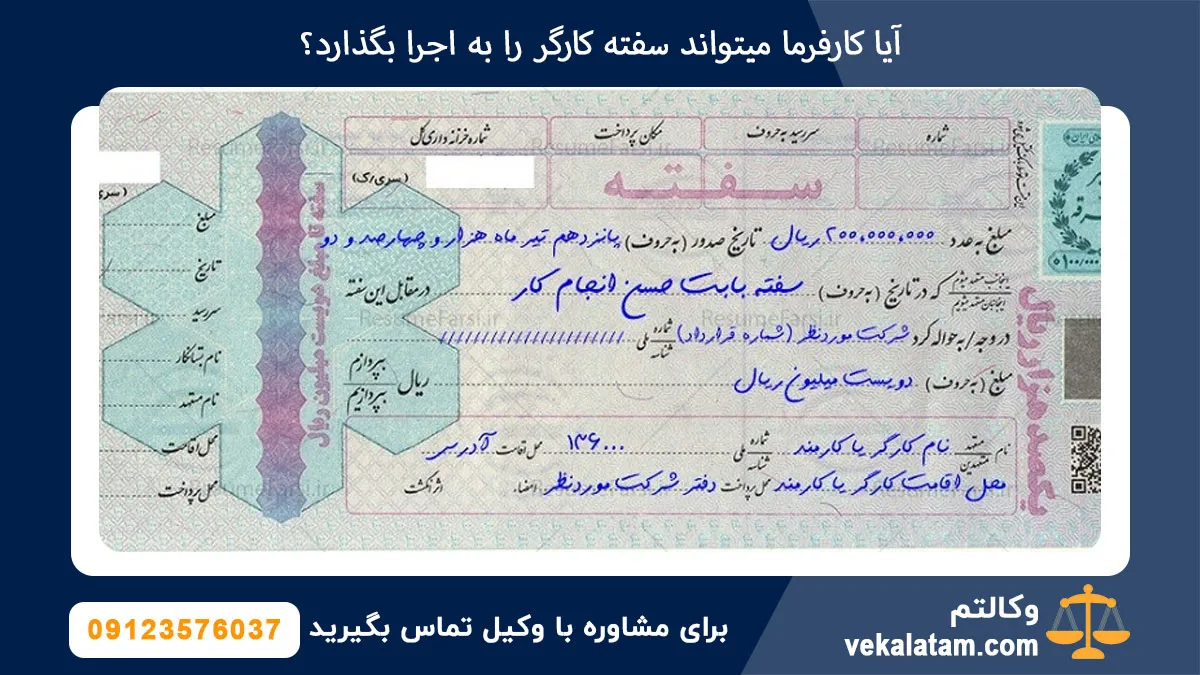 آیا کارفرما میتواند سفته کارگر را به اجرا بگذارد؟
شماره سررسید به حروف مکان پرداخت شماره خزانه داری کل
(سری/ک)
سفته
مبلغ به عدد ۲۰۰,۰۰۰,۰۰۰ ریال تاریخ صدور (به حروف) پانزدهم تیر ماه هزار و چهارصد و دو
اینجانب متعهد میشوم
اینجانبان متعهد میشویم
که در تاریخ (به حروف) سفته بابت حسن انجام کار در مقابل این سفته
در وجه / به حواله کرد شرکت موردنظر (شماره قرارداد) شماره ملی شناسه ////////////////////////
مبلغ (به حروف) دویست میلیون ریال ریال بپردازم
بپردازیم
نام متعهد متعهدین نام کارگر یا کارمند شماره ملی شناسه ۱۳۶۰۰۰ محل اقامت آدرس
محل اقامت کارگر یا کارمند محل پرداخت دفتر شرکت موردنظر امضاء اثر انگشت
یکصد هزار ریال
سفته تا مبلغ دویست میلیون ریال
(سری
مبلغ
تاریخ /
سررسید
نام بستانکار
نام متعهد
محل اقامت
محل پرداخت
ResumeFarsi.ir
برای مشاوره با وکیل تماس بگیرید 09123576037
وکالتم
vekalatam.com